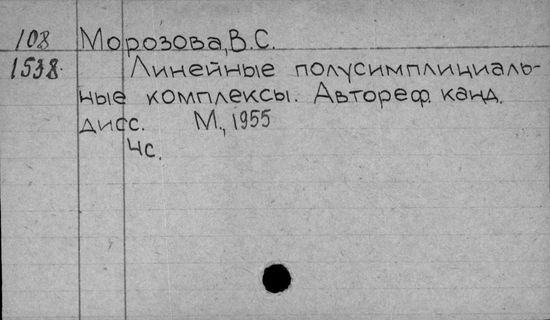 108 Морозова, В.С.
1538. Линейные полусимплициаль-
ные комплексы. Автореф. канд.
дисс. М., 1955
4с.